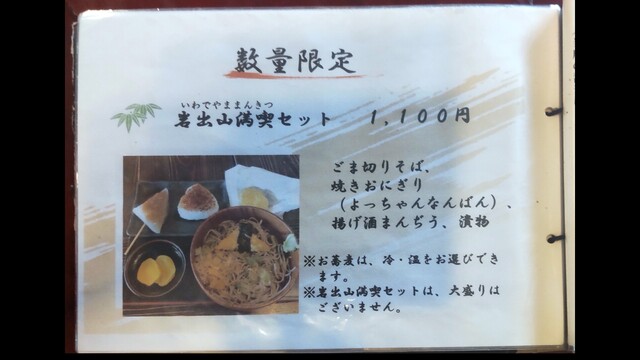 数量限定
いわでやままんきつ
岩出山満喫セット　１,１００円
ごま切りそば、
焼きおにぎり
（よっちゃんなんばん）、
揚げ酒まんぢう、漬物
※お蕎麦は、冷・温をお選びでき
ます。
※岩出山満喫セットは、大盛りは
ございません。